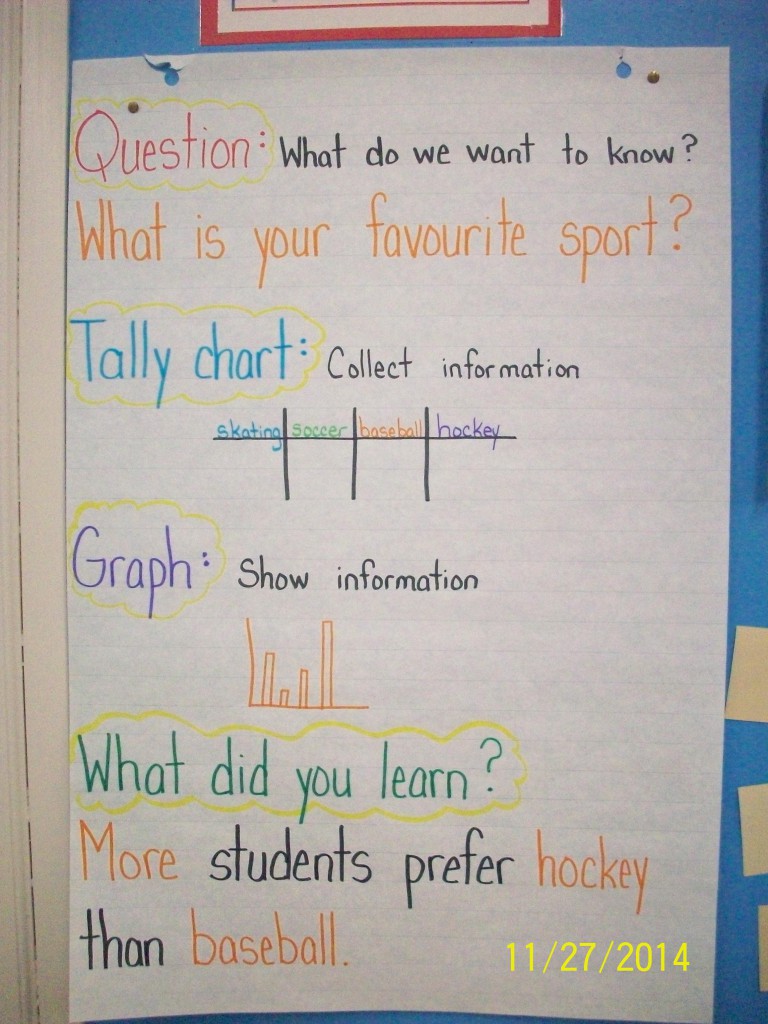 Question: What do we want to know?
What is your favourite sport?
Tally chart: Collect information
skating soccer baseball hockey
Graph: Show information
What did you learn?
More students prefer hockey
than baseball.
11/27/2014